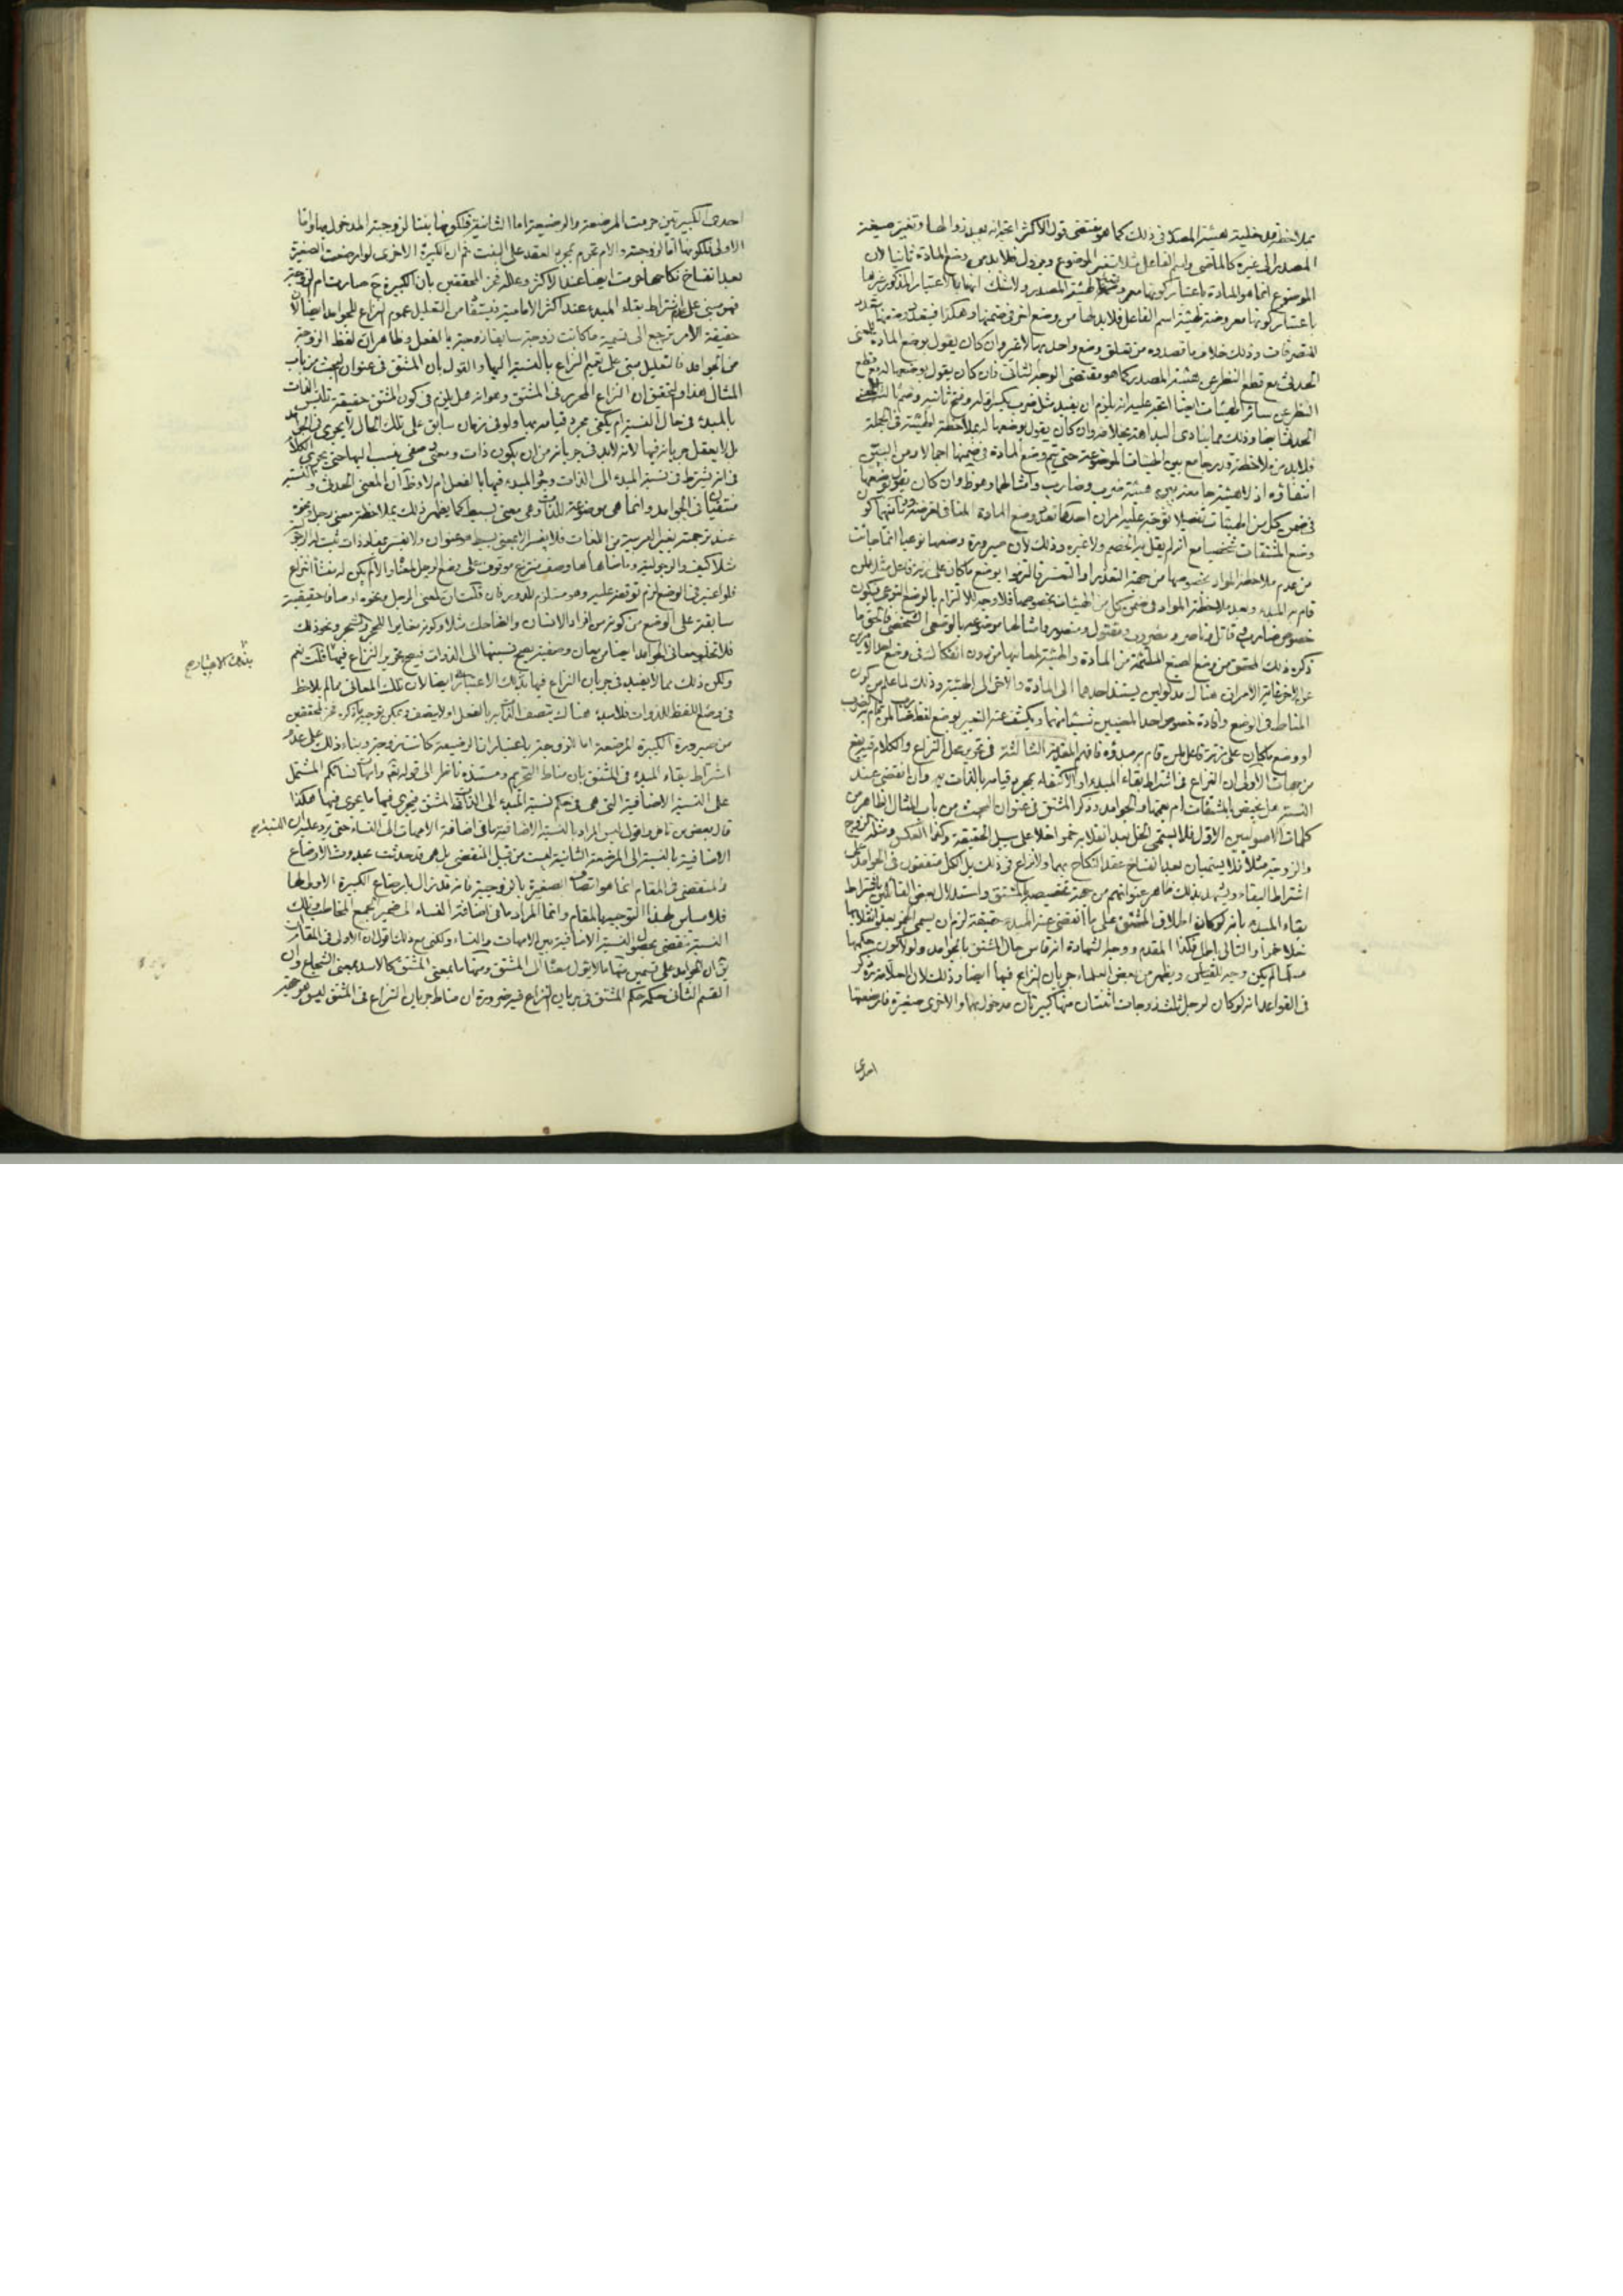 بملاحظة مدخلية هيئة المصدر في ذلك كما هو مقتضى قول الأكثر اتجه انه بعد زوالها وتغير صيغة
المصدر الى غيره كالماضي واسم الفاعل مثلا يتغير الموضوع ويزول فلا بد من وضع المادة ثانيا لان
الموضوع انما هو المادة باعتبار كونها معروضة لهيئة المصدر ولا شك انها بالاعتبار المذكور غيرها
باعتبار كونها معروضة لهيئة اسم الفاعل فلا بد لها من وضع اخر في ضمنها وهكذا فيتعدد وضعها
المتصرفات وذلك خلاف ما قصدوه من تعلق وضع واحد بها لا غير وان كان يقول بوضع المادة
الحدثي مع قطع النظر عن هيئة المصدر كما هو مقتضى الوجه الثاني فان كان يقول بوضعها له مع قطع
النظر عن سائر الهيئات ايضا اتجه عليه انه يلزم ان يفيد مثل ضرب بكسر اوله وفتح ثانيه
الحدث ايضا وذلك مما ينادي البداهة بخلافه وان كان يقول بوضعها له بملاحظة الهيئة في الجملة
فلا بد من ملاحظة قدر جامع بين الهيئات الموضوعة حتى يتم وضع المادة في ضمنها اجمالا ومن البين
انتفاؤه اذ لا هيئة جامعة بين هيئة ضرب وضارب وامثالهما وهو ظ وان كان يقول بوضعها
في ضمن كل من الهيئات تفصيلا يتوجه عليه امران احدهما تعدد وضع المادة المنافي لغرضه وثانيهما كون
وضع المشتقات شخصيا مع انه لم يقل به الخصم ولا غيره وذلك لان صيرورة وضعها نوعيا انما جاءت
من عدم ملاحظة المواد بخصوصها من جهة التعذر او التعسر فالتزموا بوضع ما كان على زنة فاعل مثلا لمن
قام به المبدء وبعد ملاحظة المواد في ضمن كل من الهيئات بخصوصها فلا وجه للالتزام بالوضع النوعي فيكون
خصوص ضارب وقاتل وناصر ومضروب ومقتول ومنصور وامثالها موضوعة بالوضع الشخصي فالحق ما
ذكره ذلك المحقق من وضع الصيغ الملتئمة من المادة والهيئة لمعانيها من دون انفكاك في وضع احد الامرين
عن الاخر غاية الامر ان هناك مدلولين يستند احدهما الى المادة والاخر الى الهيئة وذلك لما علم من كون
المناط في الوضع وافادة خصوص احد المعنيين شيئا منهما ويكشف عنه التعبير بوضع لفظ ضارب لمن قام به الضرب
او وضع ما كان على زنة فاعل لمن قام به مبدؤه فافهم المقدمة الثالثة في تحرير محل النزاع والكلام فيه يقع
من جهات الاولى ان النزاع في اشتراط بقاء المبدء او الاكتفاء بمجرد قيامه بالذات وان انقضى عند
النسبة هل يختص بالمشتقات ام يعمها والجوامد وذكر المشتق في عنوان البحث من باب المثال الظاهر من
كلمات الاصوليين الاول فلا يسمى الخل بعد انقلابه خمرا خلا على سبيل الحقيقة وكذا العكس ومثله الزوج
والزوجة مثلا فلا يسميان بعد انفساخ عقد النكاح بهما ولا نزاع في ذلك بل الكل متفقون في الجوامد على
اشتراط البقاء ويشهد بذلك ظاهر عنوانهم من جهة تخصيصه بالمشتق واستدلال بعض القائلين باشتراط
بقاء المبدء بانه لو كان اطلاق المشتق على ما انقضى عنه المبدء حقيقة لزم ان يسمى الخمر بعد انقلابها
خلا خمرا والتالي باطل فكذا المقدم ووجه الشهادة انه قاس حال المشتق بالجوامد ولولا كون حكمها
مسلما لم يكن وجه للقياس ويظهر من بعض العلماء جريان النزاع فيها ايضا وذلك لان العلامة ره ذكر
في القواعد انه لو كان لرجل ثلث زوجات اثنتان منها كبيرتان مدخول بهما والاخرى صغيرة فارضعتها
احدى
احدى الكبيرتين حرمت المرضعة والرضيعة اما الثانية فلكونها بنتا لزوجته المدخول بها واما
الاولى فلكونها اما لزوجته والام تحرم بمجرد العقد على البنت ثم ان الكبيرة الاخرى لو ارضعت الصغيرة
بعد انفساخ نكاحها حرمت ايضا عند الاكثر وعلله فخر المحققين بان الكبيرة ح صارت ام لزوجته
فهو مبني على عدم اشتراط بقاء المبدء عند اكثر الامامية فيستفاد من التعليل عموم النزاع للجوامد ايضا لان
حقيقة الامر ترجع الى تسمية ما كانت زوجة سابقا زوجة بالفعل وظاهر ان لفظ الزوجة
من الجوامد فالتعليل مبني على تعميم النزاع بالنسبة اليها والقول بان المشتق في عنوان البحث من باب
المثال هذا والتحقيق ان النزاع المحرر في المشتق وهو انه هل يلزم في كون المشتق حقيقة تلبس الذات
بالمبدء في حال النسبة ام يكفي مجرد قيامه بها ولو في زمان سابق على تلك الحال لا يجري في الجوامد
بل لا يعقل جريانه فيها لانه لا بد في جريانه من ان يكون ذات ومعنى وصفي ينسب اليها حتى يجري الكلام
في انه يشترط في نسبة المبدء الى الذات وجود المبدء فيها بالفعل ام لا وظ ان المعنى الحدثي والنسبة
منتفيان في الجوامد وانما هي موضوعة للذات وهي معنى بسيط كما يظهر ذلك بملاحظة معنى رجل ونحوه
عند ترجمته بغير العربية من اللغات فلا يفسر الا بمعنى بسيط هو عنوان ولا يفسر بمفاد ذات ثبت له الرجولية
مثلا كيف والرجولية وما شابهها وصف منتزع موقوف على وضع الرجل لمعناه والا لم يكن له منشأ انتزاع
فلو اعتبر في الوضع لزم توقفه عليه وهو مستلزم للدور فان قلت ان لمعنى الرجل ونحوه اوصافا حقيقية
سابقة على الوضع من كونه من افراد الانسان والضاحك مثلا وكونه مغايرا للحجر والشجر ونحو ذلك
فلا تخلو معاني الجوامد ايضا من معان وصفية يصح نسبتها الى الذوات فيصح تحرير النزاع فيها قلت نعم
ولكن ذلك مما لا يفيد في جريان النزاع فيها بذلك الاعتبار ايضا لان تلك المعاني مما لم يلاحظ
في وضع اللفظ للذوات فلا مبدء هناك يتصف الذات به بالفعل او لا يتصف ويمكن توجيه ما ذكره فخر المحققين
من صيرورة الكبيرة المرضعة اما لزوجته باعتبار ان الرضيعة كانت زوجة وبناء ذلك على عدم
اشتراط بقاء المبدء في المشتق بان مناط التحريم ومستنده ناظر الى قوله تعم وامهات نسائكم المشتمل
على النسبة الاضافية التي هي في حكم نسبة المبدء الى الذات في المشتق فيجري فيها ما يجري فيها هكذا
قال بعض من تاخر واقول ليس المراد بالنسبة الاضافية ما في اضافة الامهات الى النساء حتى يرد عليه ان النسبة
الاضافية بالنسبة الى المرضعة الثانية ليست من قبيل المنقضي بل هي قد حدثت بحدوث الارضاع
والمنقضي في المقام انما هو اتصاف الصغيرة بالزوجية فانه قد زال بارضاع الكبيرة الاولى لها
فلا مساس لهذا التوجيه بالمقام وانما المراد ما في اضافة النساء الى ضمير الجمع المخاطب وتلك
النسبة تنقضي بحصول النسبة الاضافية بين الامهات والنساء ولكني مع ذلك اقول ان الاولى في المقام ان
يق ان الجوامد على قسمين منها ما لا يؤل معنا الى المشتق ومنها ما بمعنى المشتق كالاسد بمعنى الشجاع وان
القسم الثاني حكمه حكم المشتق في جريان النزاع فيه ضرورة ان مناط جريان النزاع في المشتق ليس هو حيث